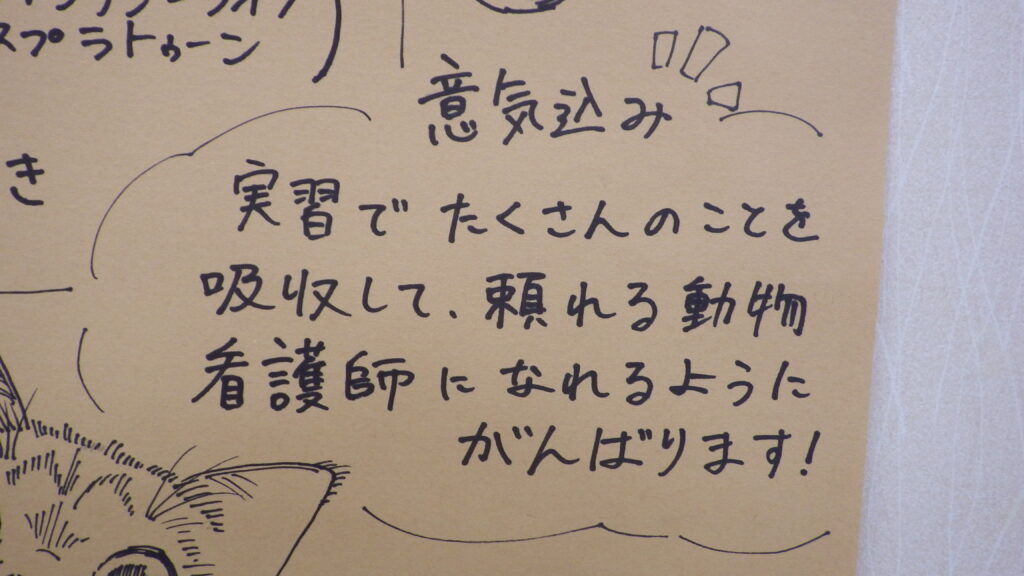 スプラトゥーン
き
意気込み
実習で たくさんのことを
吸収して、頼れる動物
看護師になれるように
がんばります!